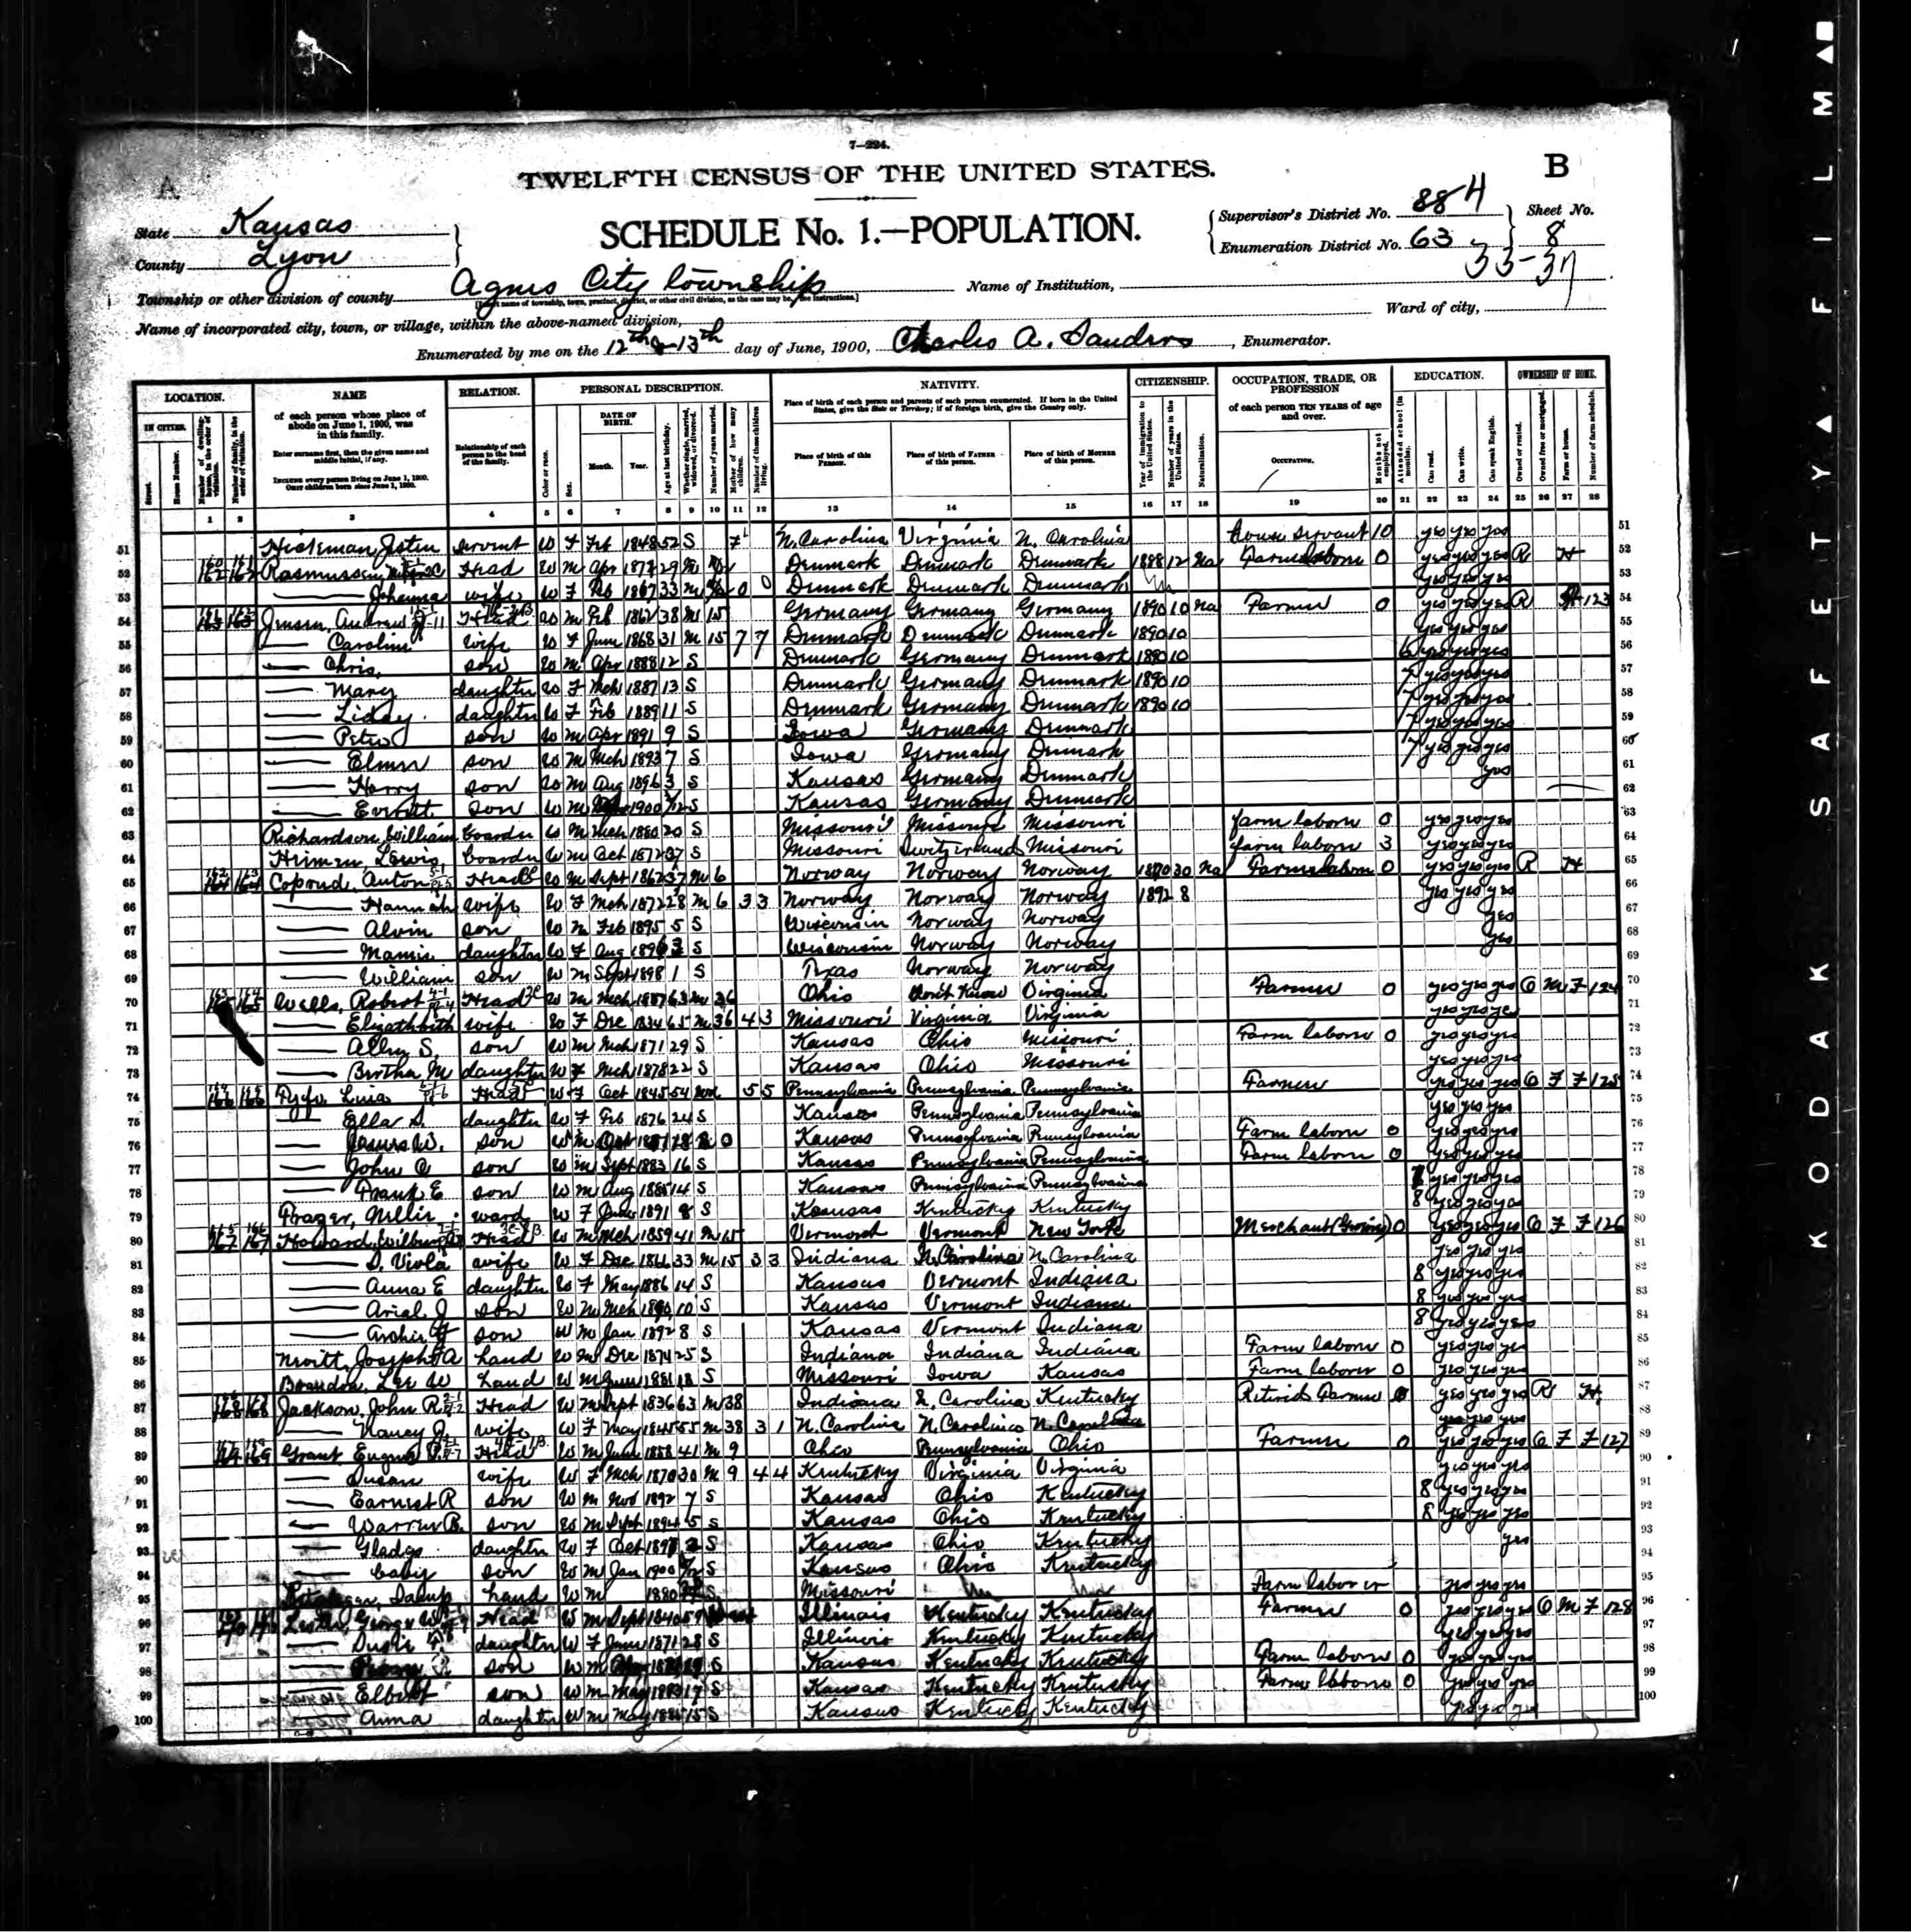 7—224.
TWELFTH CENSUS OF THE UNITED STATES.
B
State Kansas
County Lyon
SCHEDULE No. 1.—POPULATION.
Supervisor's District No. 884
Enumeration District No. 63
Sheet No. 8
33-37
Township or other division of county Agnes City township
Name of Institution,
Name of incorporated city, town, or village, within the above-named division,
Ward of city,
Enumerated by me on the 12th & 13th day of June, 1900, Charles A. Sanders, Enumerator.
LOCATION. NAME RELATION. PERSONAL DESCRIPTION. NATIVITY. CITIZENSHIP. OCCUPATION, TRADE, OR PROFESSION EDUCATION. OWNERSHIP OF HOME.
of each person whose place of abode on June 1, 1900, was in this family.
Enter surname first, then the given name and middle initial, if any.
INCLUDE every person living on June 1, 1900. OMIT children born since June 1, 1900.
Relationship of each person to the head of the family.
DATE OF BIRTH. Month. Year.
Place of birth of each person and parents of each person enumerated. If born in the United States, give the State or Territory; if of foreign birth, give the Country only.
Place of birth of this PERSON. Place of birth of FATHER of this person. Place of birth of MOTHER of this person.
of each person TEN YEARS of age and over.
OCCUPATION.
1 2 3 4 5 6 7 8 9 10 11 12 13 14 15 16 17 18 19 20 21 22 23 24 25 26 27 28
51 Hickman servent W F Feb 1848 52 S N. Carolina Virginia N. Carolina house servant 10 yes yes yes 51
52 Rasmussen Head W M Apr 29 M Denmark Denmark Denmark 1888 12 Na Farm laborer 0 yes yes yes R H 52
53 Johanna wife W F Feb 1867 33 M 0 0 Denmark Denmark Denmark yes yes yes 53
54 Jensen, Andrew Head W M Feb 1862 38 M 15 Germany Germany Germany 1890 10 Na Farmer 0 yes yes yes R 123 54
55 Caroline wife W F June 1868 31 M 15 7 7 Denmark Denmark Denmark 1890 10 yes yes yes 55
56 Chris, son W M Apr 1888 12 S Denmark Germany Denmark 1890 10 6 yes yes yes 56
57 Mary daughter W F Mch 1887 13 S Denmark Germany Denmark 1890 10 7 yes yes yes 57
58 daughter W F Feb 1889 11 S Denmark Germany Denmark 1890 10 7 yes yes yes 58
59 Peter son W M Apr 1891 9 S Iowa Germany Denmark 7 yes yes yes 59
60 Elmer son W M Mch 1893 7 S Iowa Germany Denmark 7 yes yes yes 60
61 Harry son W M Aug 1896 3 S Kansas Germany Denmark yes 61
62 Everett son W M 1900 S Kansas Germany Denmark 62
63 Richardson, William boarder W M Mch 1880 20 S Missouri Missouri Missouri farm laborer 0 yes yes yes 63
64 Lewis boarder W M Oct 1872 27 S Missouri Switzerland Missouri farm laborer 3 yes yes yes 64
65 Anton Head W M Sept 1862 37 M 6 Norway Norway Norway 1870 30 Na Farm laborer 0 yes yes yes R H 65
66 Hannah wife W F Mch 1872 28 M 6 3 3 Norway Norway Norway 1892 8 yes yes yes 66
67 Alvin son W M Feb 1895 5 S Wisconsin Norway Norway yes 67
68 Mamie daughter W F Aug 1896 3 S Wisconsin Norway Norway yes 68
69 William son W M Sept 1898 1 S Texas Norway Norway 69
70 Wells, Robert Head W M Mch 63 M 36 Ohio Don't Know Virginia Farmer 0 yes yes yes O M F 124 70
71 Elizabheth wife W F Dec 1834 65 M 36 4 3 Missouri Virginia Virginia yes yes ye 71
72 Allen S. son W M Mch 1871 29 S Kansas Ohio Missouri Farm laborer 0 yes yes yes 72
73 Bertha M daughter W F Mch 1878 22 S Kansas Ohio Missouri yes yes yes 73
74 Head W F Oct 1845 54 Wd 5 5 Pennsylvania Pennsylvania Pennsylvania Farmer yes yes yes O F F 125 74
75 Ella S. daughter W F Feb 1876 24 S Kansas Pennsylvania Pennsylvania yes yes yes 75
76 James W. son W M Oct S 0 Kansas Pennsylvania Pennsylvania Farm laborer 0 yes yes yes 76
77 John C son W M Sept 1883 16 S Kansas Pennsylvania Pennsylvania Farm laborer 0 yes yes yes 77
78 Frank E son W M Aug 1885 14 S Kansas Pennsylvania Pennsylvania yes yes yes 78
79 Frazer, Nellie ward W F 1891 8 S Kansas Kentucky Kentucky 8 yes yes yes 79
80 Howard, Wilbur Head W M Mch 1859 41 M 15 Vermont Vermont New York Merchant 0 yes yes yes O F F 126 80
81 S. Viola wife W F Dec 1866 33 M 15 3 3 Indiana N. Carolina N. Carolina yes yes yes 81
82 Anna E daughter W F May 1886 14 S Kansas Vermont Indiana 8 yes yes yes 82
83 Arial J son W M Mch 1890 10 S Kansas Vermont Indiana 8 yes yes yes 83
84 Archie son W M Jan 1892 8 S Kansas Vermont Indiana 8 yes yes yes 84
85 Joseph A hand W M Dec 1874 25 S Indiana Indiana Indiana Farm laborer 0 yes yes yes 85
86 Brandon, Lee W hand W M June 1881 18 S Missouri Iowa Kansas Farm laborer 0 yes yes yes 86
87 168 168 Jackson, John R Head W M Sept 1836 63 M 38 Indiana S. Carolina Kentucky Retired Farmer 0 yes yes yes R H 87
88 Nancy J. wife W F May 1845 55 M 38 3 1 N. Carolina N. Carolina N. Carolina yes yes yes 88
89 169 169 Grant Eugene Head W M June 1858 41 M 9 Ohio Pennsylvania Ohio Farmer 0 yes yes yes O F F 127 89
90 Susan wife W F Mch 1870 30 M 9 4 4 Kentucky Virginia Virginia yes yes yes 90
91 Earnest R son W M Nov 1892 7 S Kansas Ohio Kentucky 8 yes yes yes 91
92 Warren B. son W M Sept 1894 5 S Kansas Ohio Kentucky 8 yes yes yes 92
93 Gladys daughter W F Oct 1897 2 S Kansas Ohio Kentucky yes 93
94 baby son W M Jan 1900 S Kansas Ohio Kentucky 94
95 hand W M 1880 S Missouri Un Un Farm laborer yes yes yes 95
96 George W Head W M Sept 1840 59 Illinois Kentucky Kentucky Farmer 0 yes yes yes O M F 128 96
97 Susie daughter W F June 1871 28 S Illinois Kentucky Kentucky yes yes yes 97
98 son W M S Kansas Kentucky Kentucky Farm laborer 0 yes yes yes 98
99 Elbert son W M May 17 S Kansas Kentucky Kentucky Farm laborer 0 yes yes yes 99
100 Anna daughter W M May 15 S Kansas Kentucky Kentucky yes yes yes 100
KODAK SAFETY FILM